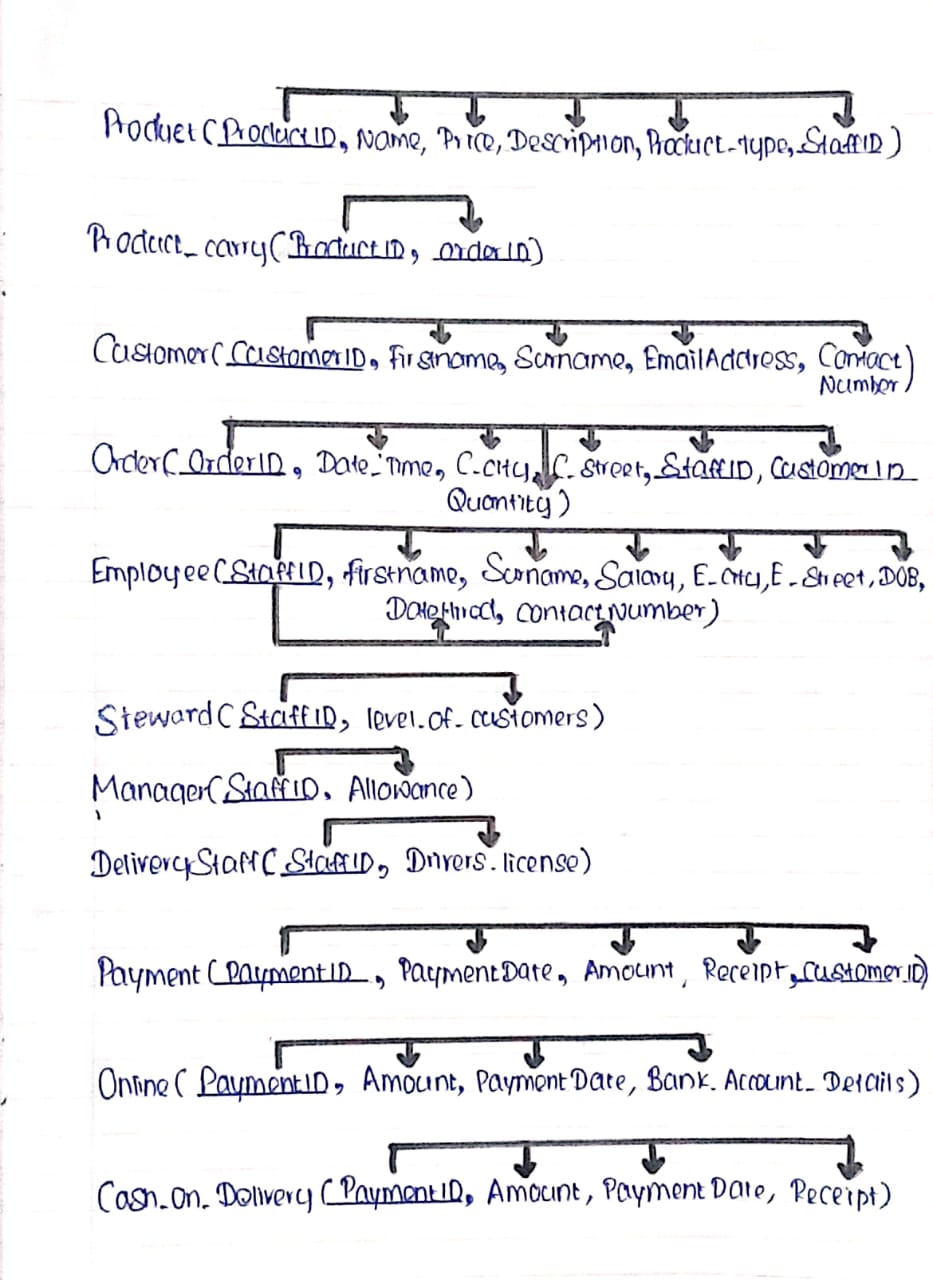 Product (ProductID, Name, Price, Description, Product_type, StaffID)
Product_carry(ProductID, orderID)
Customer(CustomerID, Firstname, Surname, EmailAddress, Contact
Number)
Order(OrderID, Date_Time, C_City, C_Street, StaffID, CustomerID
Quantity)
Employee(StaffID, firstname, Surname, Salary, E_City, E_Street, DOB,
DateHired, ContactNumber)
Steward(StaffID, level_of_customers)
Manager(StaffID, Allowance)
DeliveryStaff(StaffID, Drivers_license)
Payment(PaymentID, PaymentDate, Amount, Receipt, CustomerID)
Online(PaymentID, Amount, Payment Date, Bank_Account_Details)
Cash_On_Delivery(PaymentID, Amount, Payment Date, Receipt)